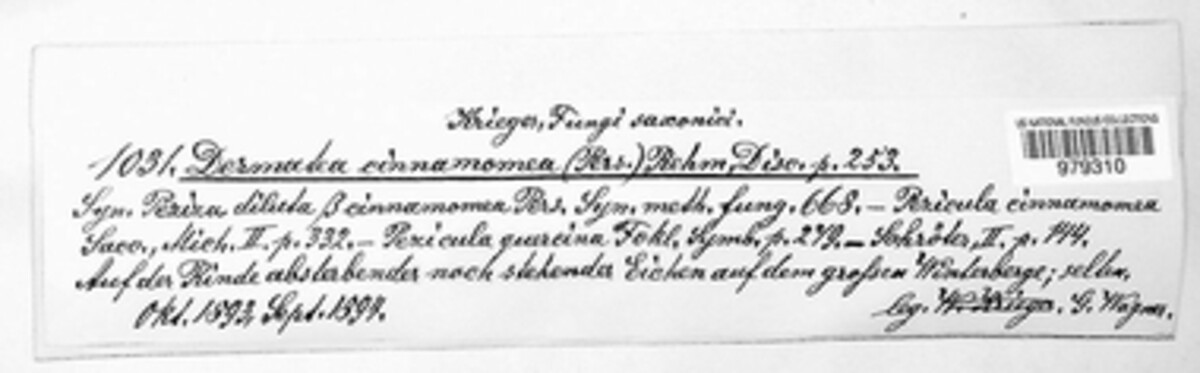 Krieger, Fungi saxonici.
US NATIONAL FUNGUS COLLECTIONS
979310
1031. Dermatea cinnamomea (Prs.) Rehm, Disc. p. 253.
Syn. Peziza diluta β cinnamomea Prs. Syn. meth. fung. 668. – Pezicula cinnamomea
Sacc., Mich. II. p. 332. – Pezicula quercina Fckl. Symb. p. 279. – Schröter, II. p. 144.
Auf der Rinde absterbender noch stehender Eichen auf dem großen Winterberge; selten.
Okt. 1892, Sept. 1894.
leg. W. Krieger. G. Wagner.